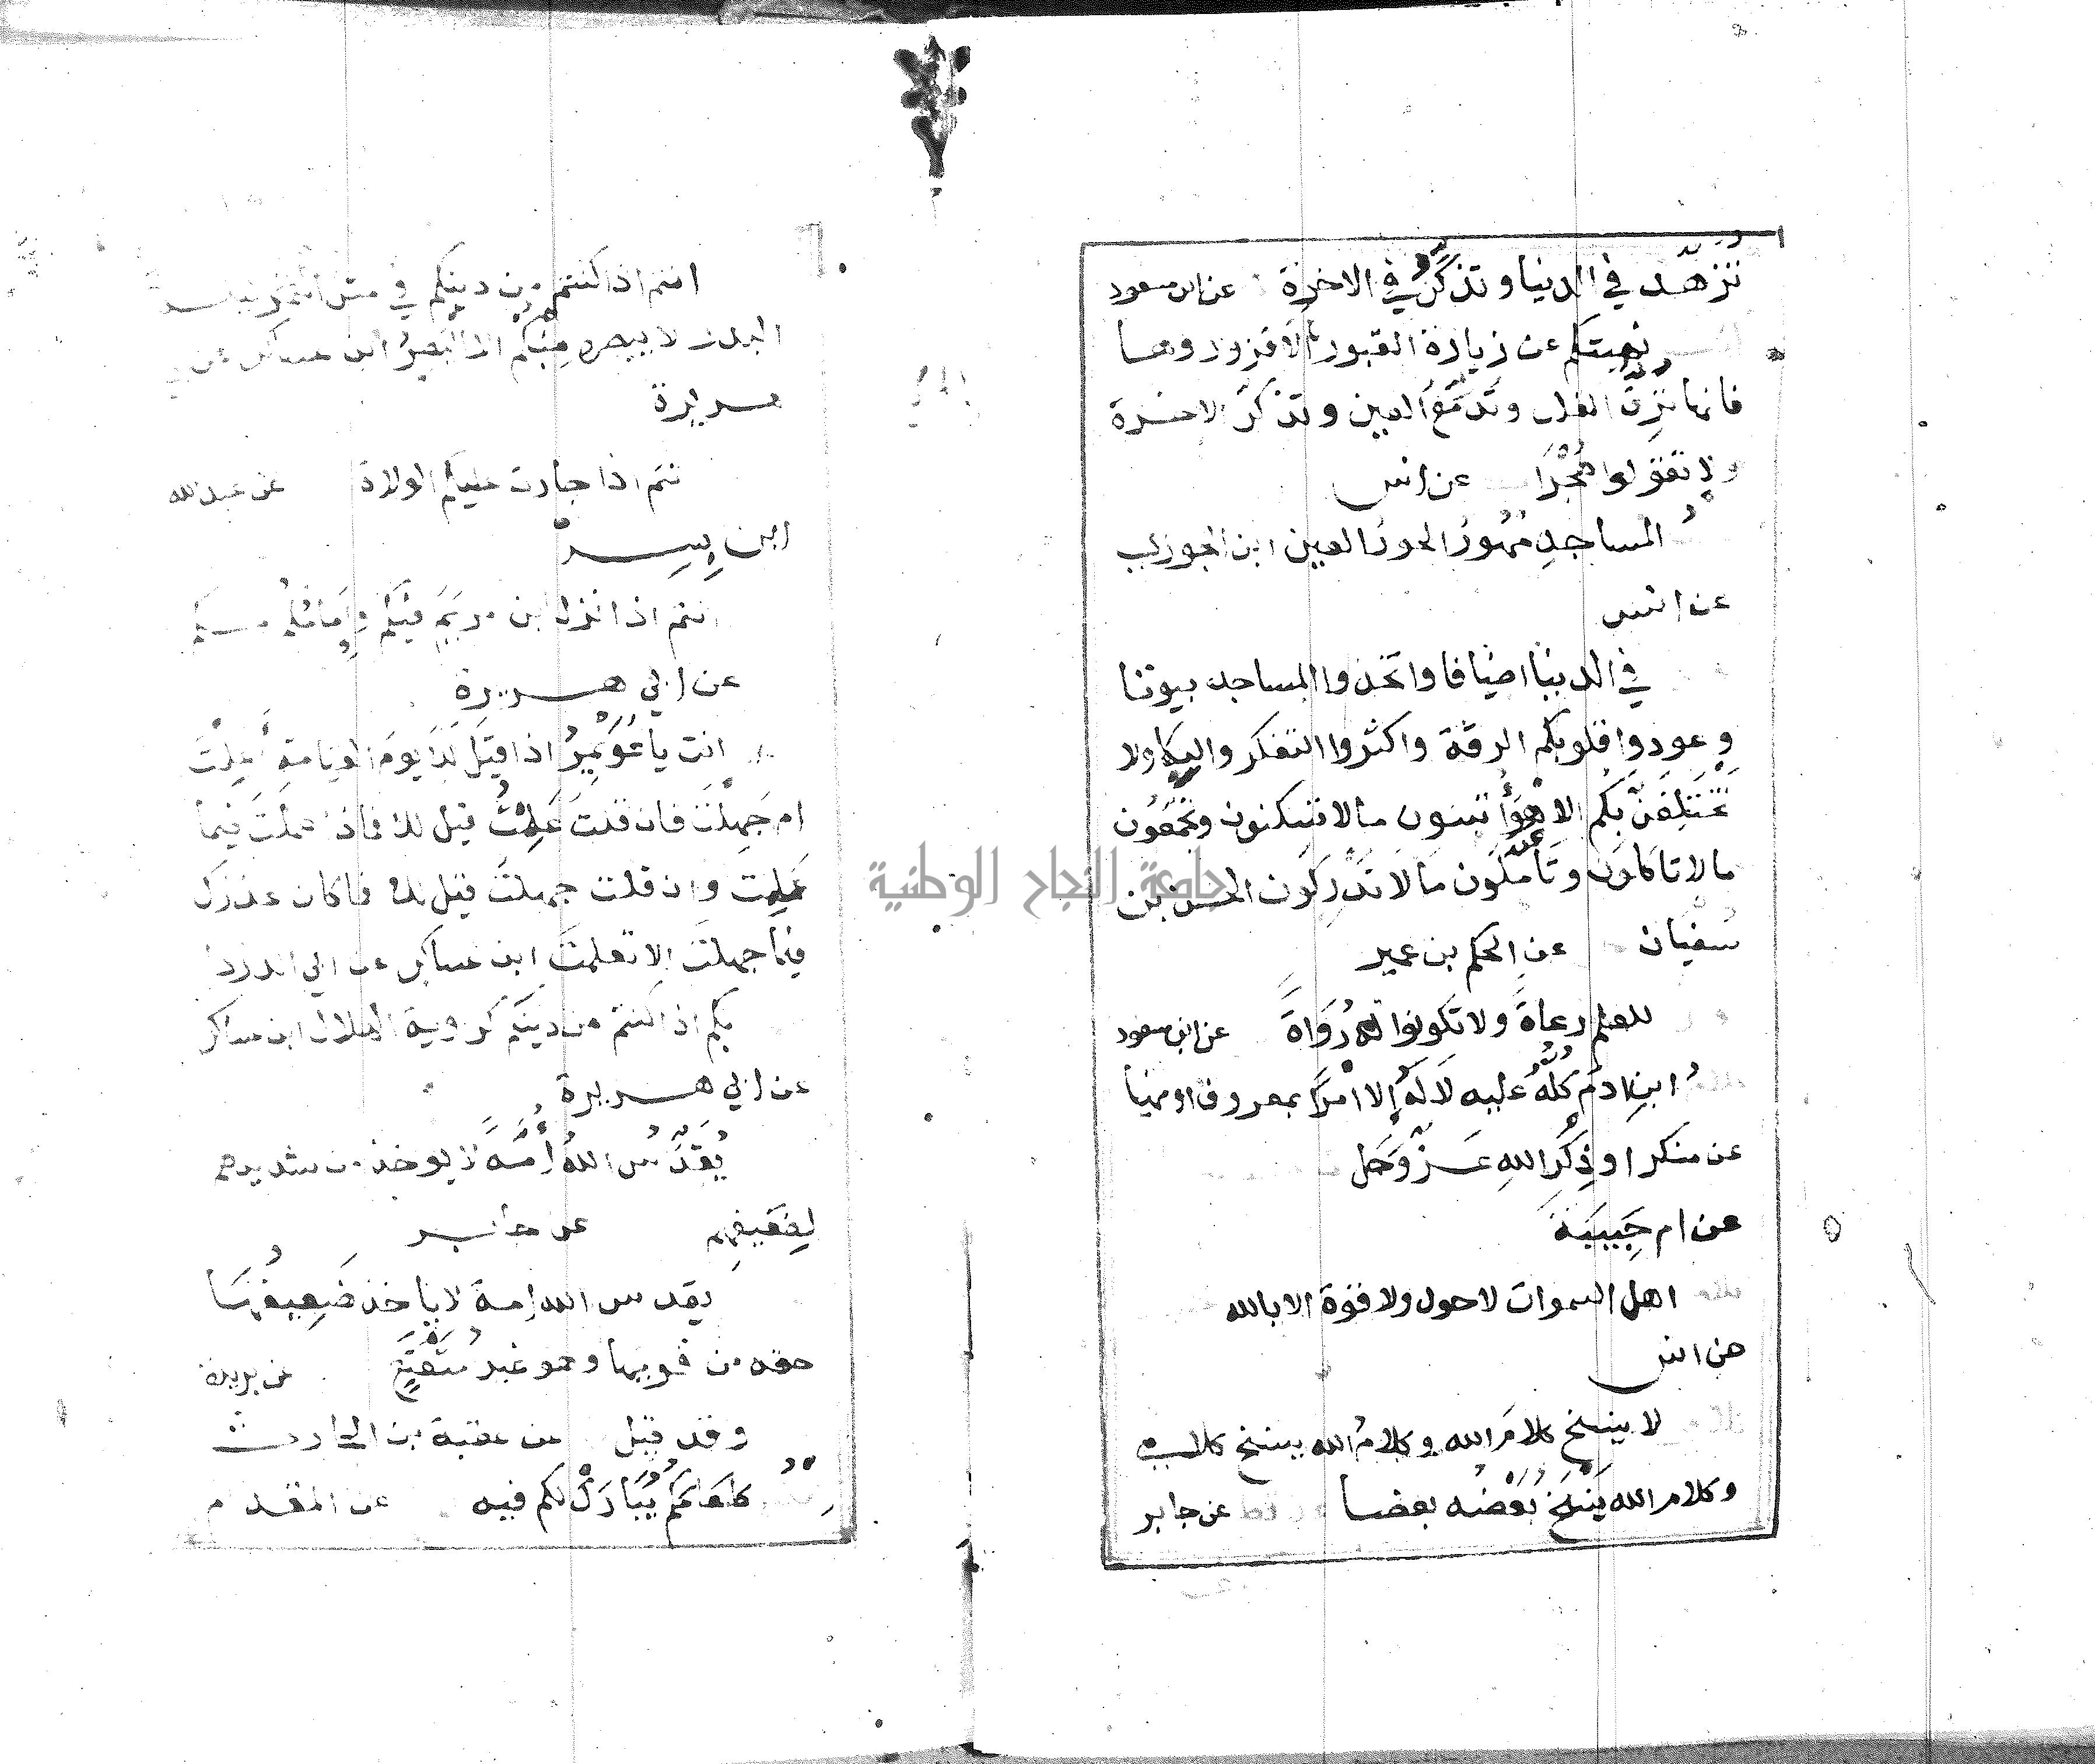 تُزَهِّد في الدنيا وتذكِّرُ في الاخرة عن ابن مسعود
نهيتكم عن زيارة القبور ألا فزوروها
فانها تُرِقُّ القلب وتَدمَعُ العين وتذكر الاخرة
ولا تقولوا هُجْرًا عن انس
المساجدِ مُهُورُ الحور العين ابن الجوزي
عن انس
في الدنيا اضيافا واتخذوا المساجد بيوتا
وعودوا قلوبكم الرقة واكثروا التفكر والبكا ولا
تختلفنّ بكم الاهوأ تبنون ما لا تسكنون وتجمعون
ما لا تاكلون وتأملون ما لا تدركون الحسن بن
سفيان عن الحكم بن عمير
للعلم رعاةً ولا تكونوا له رُوَاةً عن ابن مسعود
ابنِ ادم كلُّهُ عليه لا لَهُ إلا امرًا بمعروف او نهيا
عن منكر او ذِكرَ اللهِ عَزَّ وَجَل
عن ام حَبِيبَةَ
اهل السموات لا حول ولا قوة الا بالله
عن انس
لا ينسخ كلامَ الله وكلامُ الله ينسخ كلامي
وكلام الله يَنْسَخُ بَعْضُه بعضا عن جابر
جامعة النجاح الوطنية
انتم اذا كنتم من دينكم في مثل القمر ليلة
البدر لا يبصره منكم الا البصيرُ ابن عساكر عن
هريرة
نتم اذا جارت عليكم الولاة عن عبد الله
ابن بسر
انتم اذا نزل ابن مريَم فيكم وإمامُكُم منكم
عن ابي هريرة
انت يا عُوَيْمِرُ اذا قيل لك يوم القيامة أعلمتَ
ام جَهِلْتَ فان قلت عَلِمْتُ قيل لك فماذا عملتَ فيما
عَلِمتَ وان قلت جهلتُ قيل لك فما كان عذرك
فيما جهلتَ الا تعلمتَ ابن عساكر عن ابي الدردا
بكم اذا كنتم من دينكم كروية الهلال ابن عساكر
عن ابي هريرة
يُقَدِّسُ اللهُ أُمَّةً لا يوخذ من شديدهم
لضعيفهم عن جابر
يقدس الله امة لا ياخذ ضَعِيفُهَا
حقه من قويها وهو غير مُتَعْتَعٍ عن بريدة
وقد قيل عن عقبة بن الحارث
طعامَكُم يُبَارَكْ لكم فيه عن المقدام